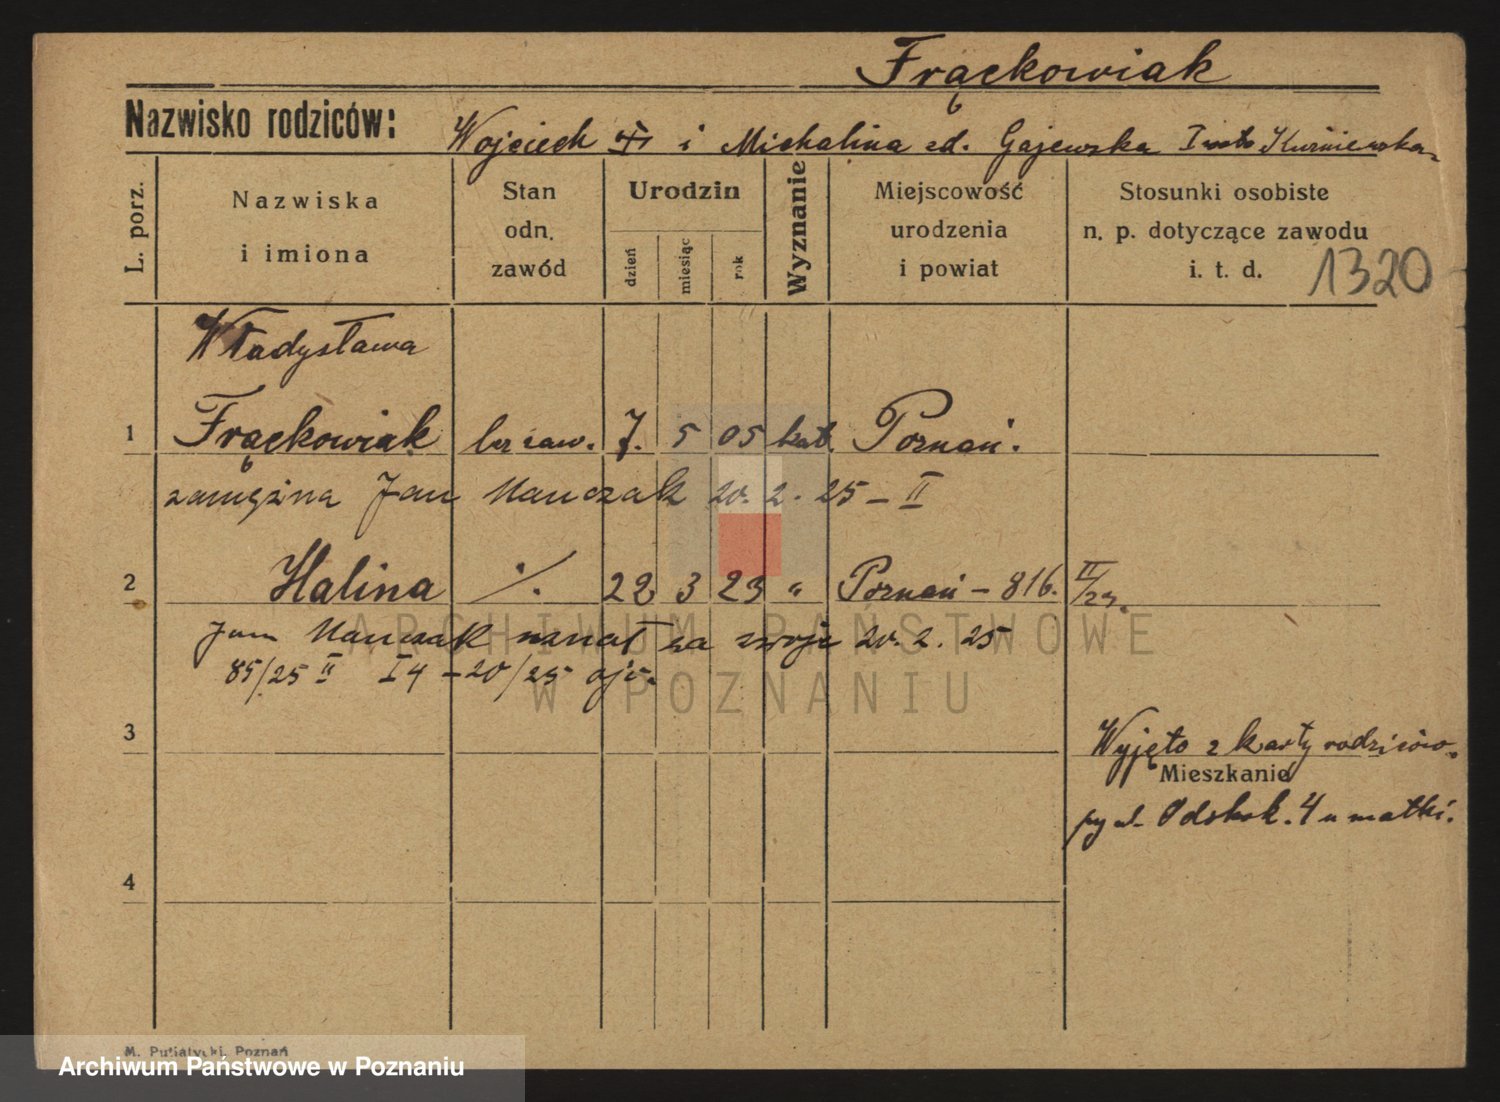 Frąckowiak
Nazwisko rodziców:
Wojciech i Michalina zd. Gajewska I voto
L. porz.
Nazwiska
i imiona
Stan
odn.
zawód
Urodzin
dzień
miesiąc
rok
Wyznanie
Miejscowość
urodzenia
i powiat
Stosunki osobiste
n. p. dotyczące zawodu
i. t. d.
1320
Władysława
1 Frąckowiak bez zaw. 7. 5 05 kat. Poznań.
zamężna Jan Nawczak 20. 2. 25 – II
2 Halina ·/. 22 3 23 " Poznań – 816. II/23.
Jan Nawczak uznał za swoje 20. 2. 25
85/25 II I 4 – 20/25
3
Wyjęto z karty rodziców.
Mieszkanie
4 u matki.
4
ARCHIWUM PAŃSTWOWE
W POZNANIU
M. Putiatycki, Poznań
Archiwum Państwowe w Poznaniu